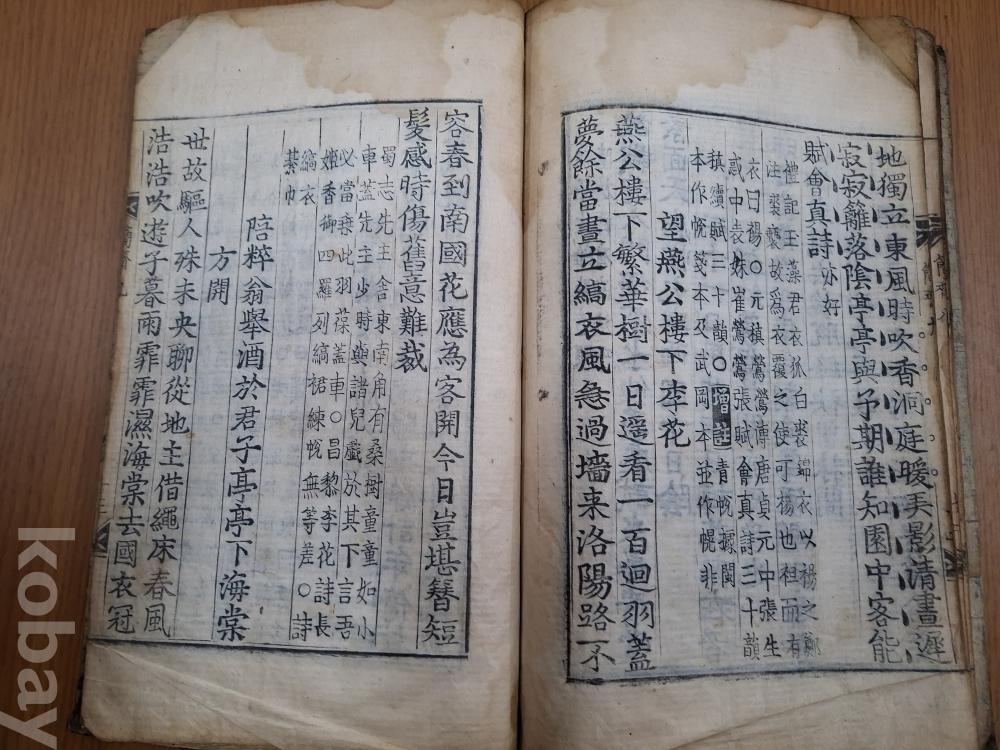 地獨立東風時吹香洞庭暖美影清晝遲
寂寂籬落陰亭亭與予期誰知園中客能
賦會真詩亦好
禮記玉藻君衣狐白裘錦衣以裼之鄭
注裘褻故爲衣覆之使可裼也袒而有
衣曰裼○元稹鶯鶯傳唐貞元中張生
惑中表妹崔鶯鶯張賦會真詩三十韻
稹續賦三十韻○增註青帨據閩
本作帨箋本及武岡本並作幌非
望燕公樓下李花
燕公樓下繁華樹一日遥看一百迴羽蓋
夢餘當晝立縞衣風急過墻来洛陽路不
容春到南國花應為客開今日豈堪簪短
髮感時傷舊意難裁
蜀志先主舍東南角有桑樹童童如小
車蓋先主少時與諸兒戲於其下言吾
必當乗此羽葆蓋車○昌黎李花詩長
姬香御四羅列縞裙練帨無等差○詩
縞衣
綦巾
陪粹翁舉酒於君子亭亭下海棠
方開
世故驅人殊未央聊從地主借繩床春風
浩浩吹遊子暮雨霏霏濕海棠去國衣冠
kobay